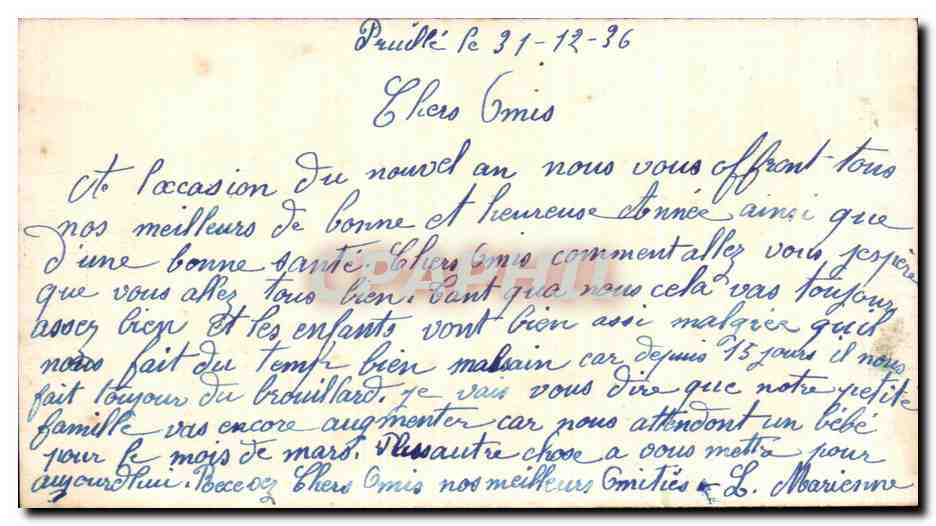 Pruillé le 31-12-36
Chers Amis
A l'occasion du nouvel an nous vous offront tous
nos meilleurs de bonne et heureuse Année ainsi que
d'une bonne santé. Chers Amis comment allez vous, jespère
que vous allez tous bien. Tant qua nous cela vas toujour
assez bien et les enfants vont bien assi malgrée quil
nous fait du temp bien malsain car depuis 15 jours il nous
fait toujour du brouillard. je vais vous dire que notre petite
famille vas encore augmenter car nous attendont un bébé
pour le mois de mars. Plus autre chose a vous mettre pour
aujourdhui. Recevez Chers Amis nos meilleurs Amitiés - L. Marienne
CPAPHIL